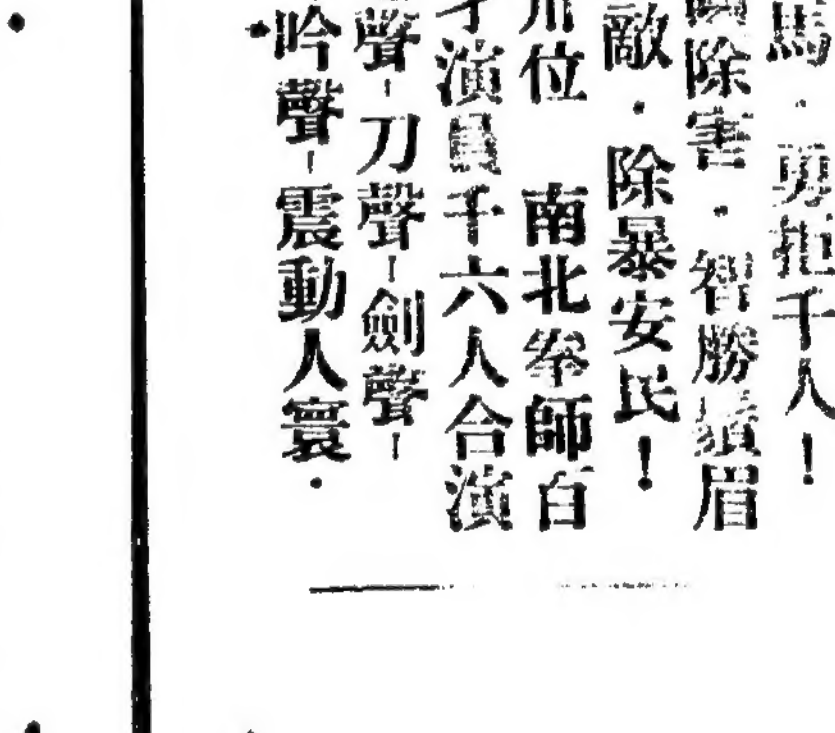 馬．勇拒千人！
除害．智勝鬚眉
敵．除暴安民！
卅位　南北拳師百
才演員千六人合演
聲－刀聲－劍聲－
吟聲－震動人寰．